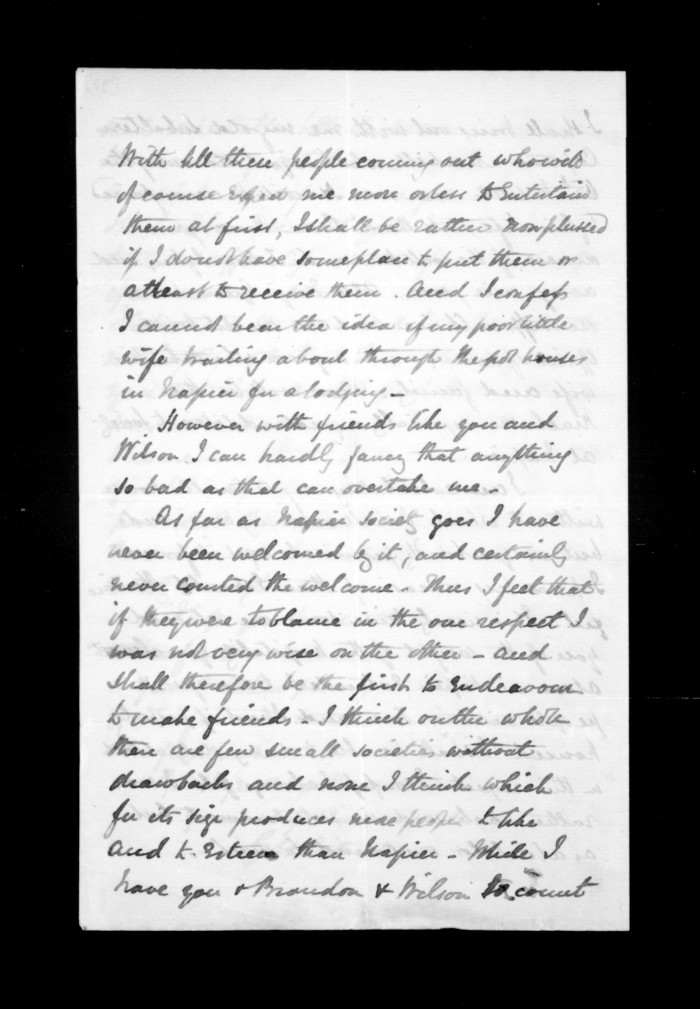 With all these people coming out who will
of course expect me more or less to Entertain
them at first, I shall be rather nonplussed
if I do not have some place to put them or
at least to receive them. And I confess
I cannot bear the idea of my poor little
wife trailing about through the pot houses
in Napier for a lodging -
However with friends like you and
Wilson I can hardly fancy that anything
so bad as that can overtake me -
As far as Napier society goes I have
never been welcomed by it, and certainly
never courted the welcome - Thus I feel that
if they were to blame in the one respect I
was not very wise on the other - and
shall therefore be the first to Endeavour
to make friends - I think on the whole
there are few small societies without
drawbacks and none I think which
for its size produces more people to like
and to Esteem than Napier - While I
have you & Brandon & Wilson to count